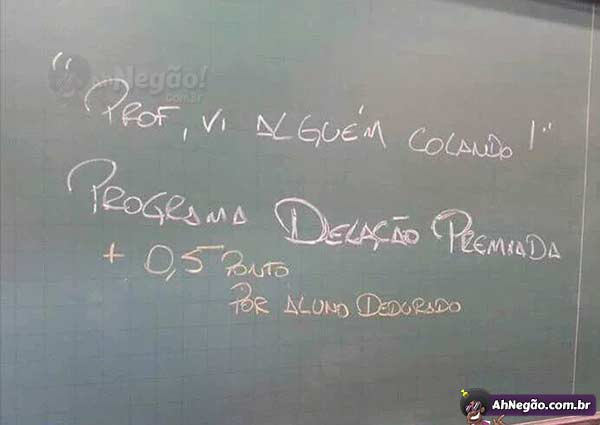 AhNegão!
.com.br
"PROF, VI ALGUÉM COLANDO!"
PROGRAMA DELAÇÃO PREMIADA
+ 0,5 PONTO
POR ALUNO DEDURADO
AhNegão.com.br